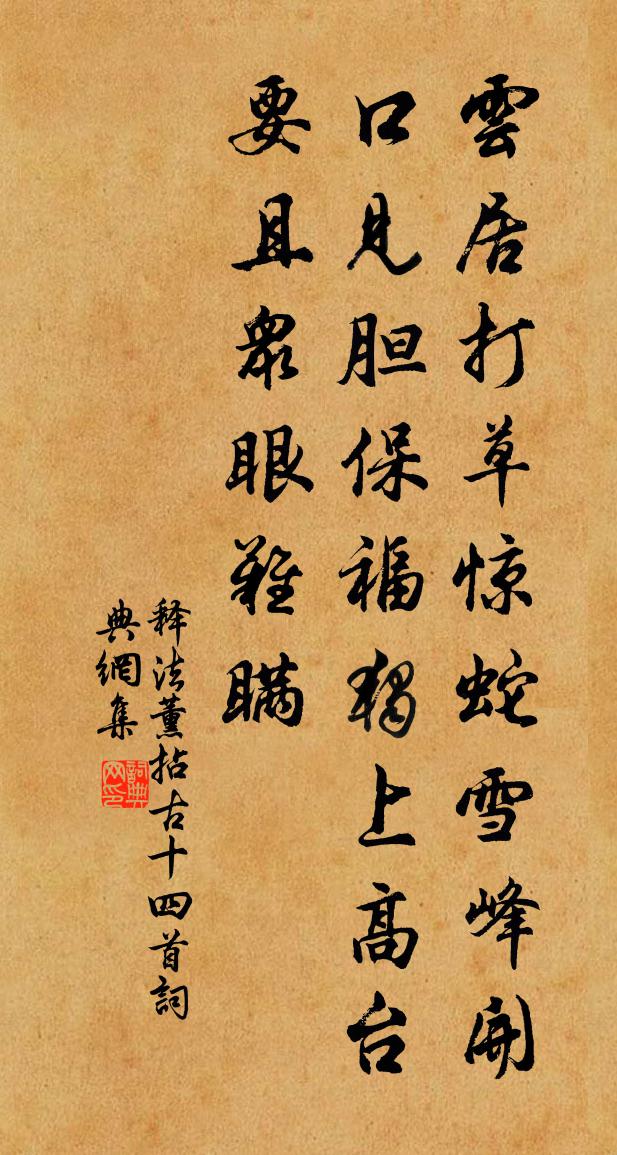 雲居打草惊蛇雪峰開
口見胆保福獨上高台
要且衆眼難瞞
释法薰拈古十四首詞
典網集
詞典
网印